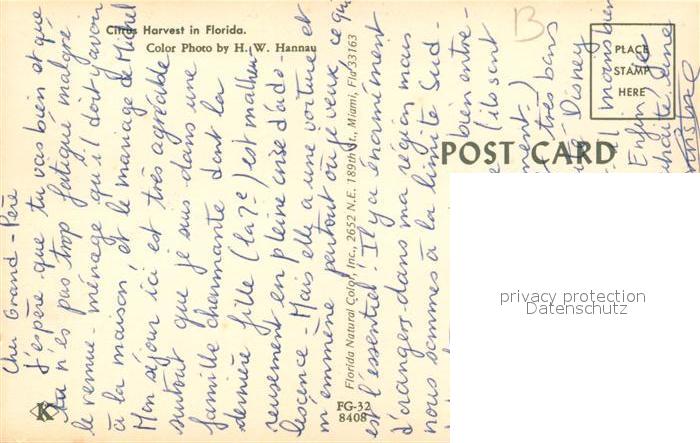 Citrus Harvest in Florida.
Color Photo by H. W. Hannau
PLACE
STAMP
HERE
POST CARD
Florida Natural Color, Inc., 2652 N.E. 189th St., Miami, Fla 33163
K
FG-32
8408
B
privacy protection
Datenschutz
Grand-Père
J'espère que tu vas bien et que
tu n'es pas trop fatigué malgré
le remue-ménage qu'il doit y avoir
à la maison, et le mariage de Michel
Mon séjour ici est très agréable
surtout que je suis dans une
famille charmante dont la
dernière fille (la 7e) est malheu
reusement en pleine crise d'ado-
lescence. Mais elle a une voiture et
m'emmène partout où je veux, ce qui
est l'essentiel! Il y a énormément
d'orangers dans ma région mais
nous sommes à la limite Sud-
bien entre-
(ils sont
ment-)
très bons
Disney
il moins bien
Enfin, je
souhaite une